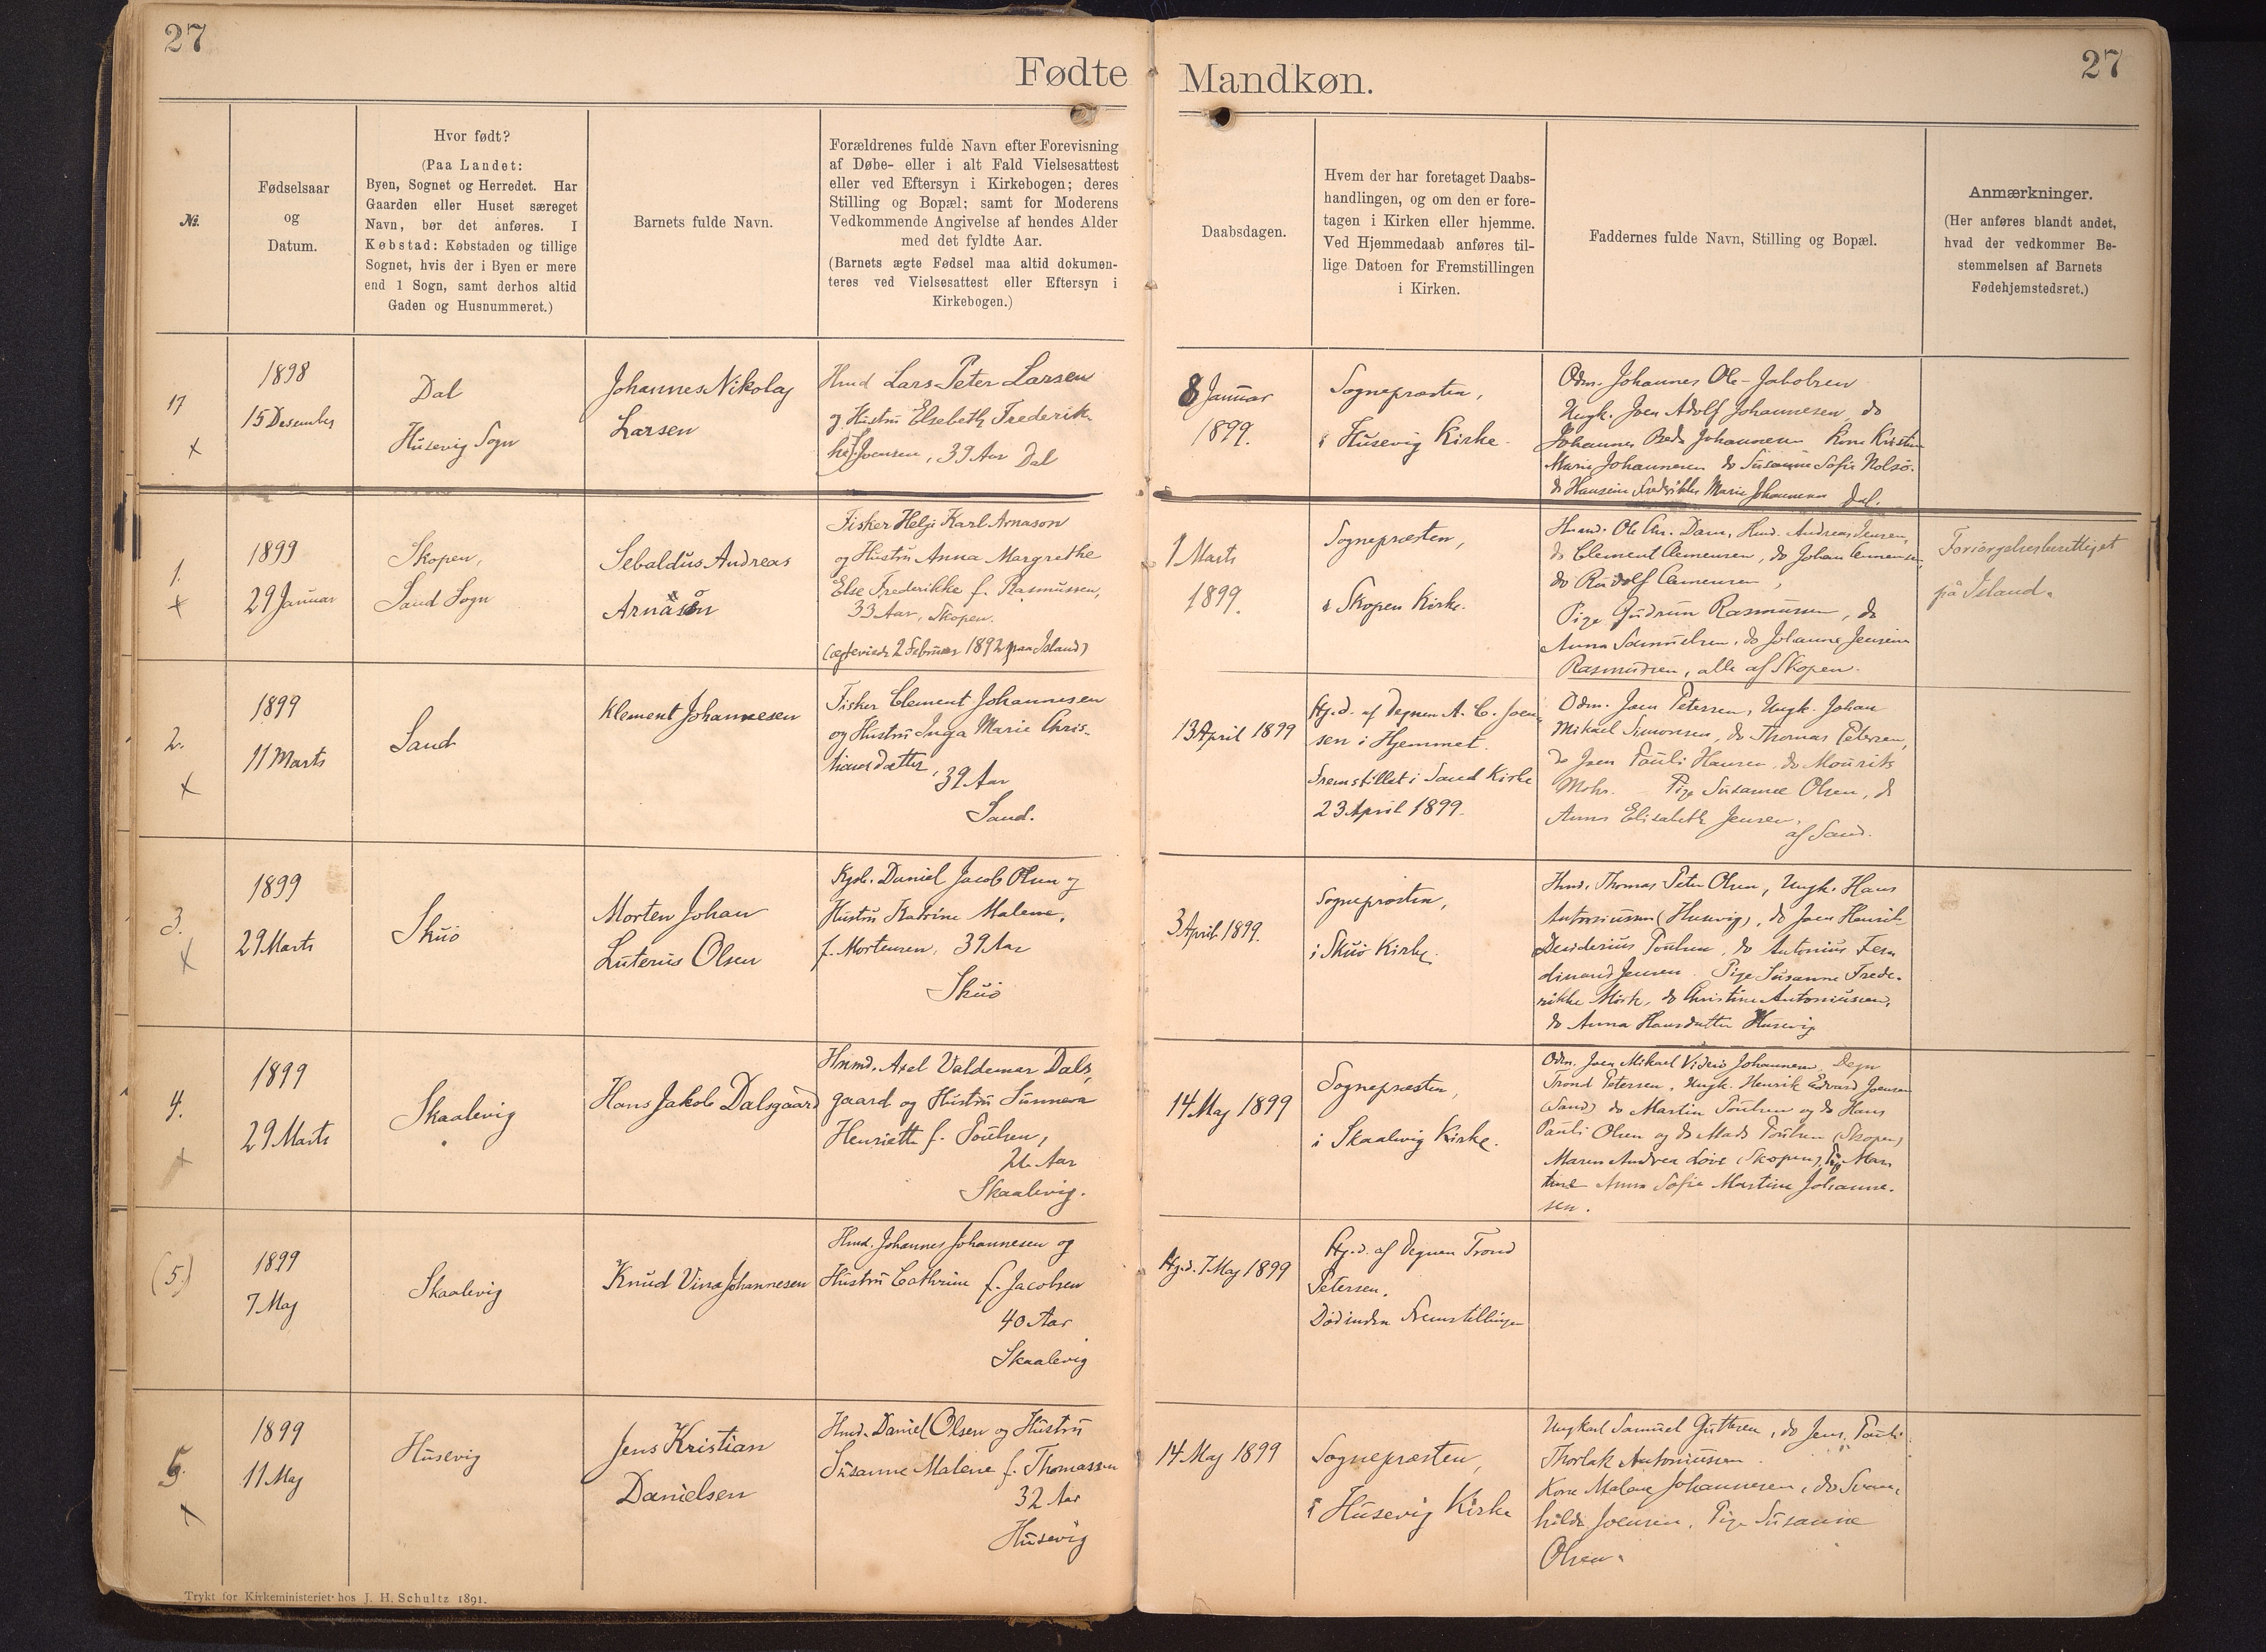 27
Fødte
Mandkøn.
27
№
Fødselsaar
og
Datum.
Hvor født?
(Paa Landet:
Byen, Sognet og Herredet. Har
Gaarden eller Huset særeget
Navn, bør det anføres. I
Købstad: Købstaden og tillige
Sognet, hvis der i Byen er mere
end 1 Sogn, samt derhos altid
Gaden og Husnummeret.)
Barnets fulde Navn.
Forældrenes fulde Navn efter Forevisning
af Døbe- eller i alt Fald Vielsesattest
eller ved Eftersyn i Kirkebogen; deres
Stilling og Bopæl; samt for Moderens
Vedkommende Angivelse af hendes Alder
med det fyldte Aar.
(Barnets ægte Fødsel maa altid dokumen-
teres ved Vielsesattest eller Eftersyn i
Kirkebogen.)
Daabsdagen.
Hvem der har foretaget Daabs-
handlingen, og om den er fore-
tagen i Kirken eller hjemme.
Ved Hjemmedaab anføres til-
lige Datoen for Fremstillingen
i Kirken.
Faddernes fulde Navn, Stilling og Bopæl.
Anmærkninger.
(Her anføres blandt andet,
hvad der vedkommer Be-
stemmelsen af Barnets
Fødehjemstedsret.)
17
x
1898
15 Desember
Dal
Husevig Sogn
Johannes Nikolaj
Larsen
Hmd Lars Peter Larsen
og Hustru Elsebeth Frederik-
ke f. Joensen, 39 Aar Dal
8 Januar
1899.
Sognepræsten,
i Husevig Kirke.
Odm. Johannes Ole-Jakobsen
Ungk. Joen Adolf Johannesen do
Johannes Johannesen Kone Kristin
Marie Johannesen do Susanne Sofie Nolsø.
do Hansine Fredrikke Marie Johannesen Dal.
1.
x
1899
29 Januar
Skopen,
Sand Sogn
Sebaldus Andreas
Arnason
Fisker Helji Karl Arnason
og Hustru Anna Margrethe
Else Frederikke f. Rasmussen,
33 Aar, Skopen.
(ægteviede 2 Februar 1892 paa Island)
1 Marts
1899.
Sognepræsten,
i Skopen Kirke.
Hmd. Ole Chr. Dam, Hmd. Andreas Jensen,
do Clement Clemensen, do Johan Clemensen,
do Rudolf Clemensen,
Pige Gudrun Rasmussen, do
Anna Samuelsen, do Johanne Jensine
Rasmussen, alle af Skopen.
Forsørgelsesberettiget
på Island.
2.
x
1899
11 Marts
Sand
Klement Johannesen
Fisker Clement Johannesen
og Hustru Inga Marie Chris-
tiansdatter, 39 Aar
Sand.
13 April 1899
Hj.d. af Degnen A. C. Joen-
sen i Hjemmet.
Fremstillet i Sand Kirke
23 April 1899.
Odm. Joen Petersen, Ungk. Johan
Mikael Simonsen, do Thomas Petersen,
do Joen Pauli Hansen, do Mourits
Mohr. Pige Susanne Olsen, do
Anna Elisabeth Jensen,
af Sand.
3.
x
1899
29 Marts
Skuø
Morten Johan
Luterus Olsen
Kgsb. Daniel Jacob Olsen og
Hustru Katrine Malene,
f. Mortensen, 39 Aar
Skuø
3 April 1899.
Sognepræsten,
i Skuø Kirke.
Hmd. Thomas Peter Olsen, Ungk. Hans
Antoniussen (Husevig), do Joen Henrik
Desiderius Poulsen, do Antonius Fer-
dinand Jensen. Pige Susanne Frede-
rikke Mørk, do Christine Antoniussen,
do Anna Hansdatter Husevig
4.
x
1899
29 Marts
Skaalevig
Hans Jakob Dalsgaard
Hmd. Axel Valdemar Dals-
gaard og Hustru Sunneva
Henriette f. Poulsen,
Aar
Skaalevig.
14 Maj 1899
Sognepræsten,
i Skaalevig Kirke.
Odm. Joen Mikael Johannesen, Degn
Trond Petersen, Ungk. Henrik Edvard Joensen
(Sand) do Martin Poulsen og do Hans
Pauli Olsen og do Mads Poulsen (Skopen)
Maren Andrea (Skopen), Pige
Anna Sofie Martine Johanne-
sen.
(5.)
1899
7 Maj
Skaalevig
Knud Vina Johannesen
Hmd. Johannes Johannesen og
Hustru Cathrine f. Jacobsen
40 Aar
Skaalevig
Hj.d. 7 Maj 1899
Hj.d. af Degnen Trond
Petersen.
Død inden Fremstillingen
6.
x
1899
11 Maj
Husevig
Jens Kristian
Danielsen
Hmd. Daniel Olsen og Hustru
Susanne Malene f. Thomassen
32 Aar
Husevig
14 Maj 1899
Sognepræsten,
i Husevig Kirke
Ungkarl Samuel Guttesen, do Jens Pauli
Thorlak Antoniussen.
Kone Malene Johannesen, do Svan-
hilda Joensen, Pige Susanne
Olsen.
Trykt for Kirkeministeriet hos J. H. Schultz 1891.